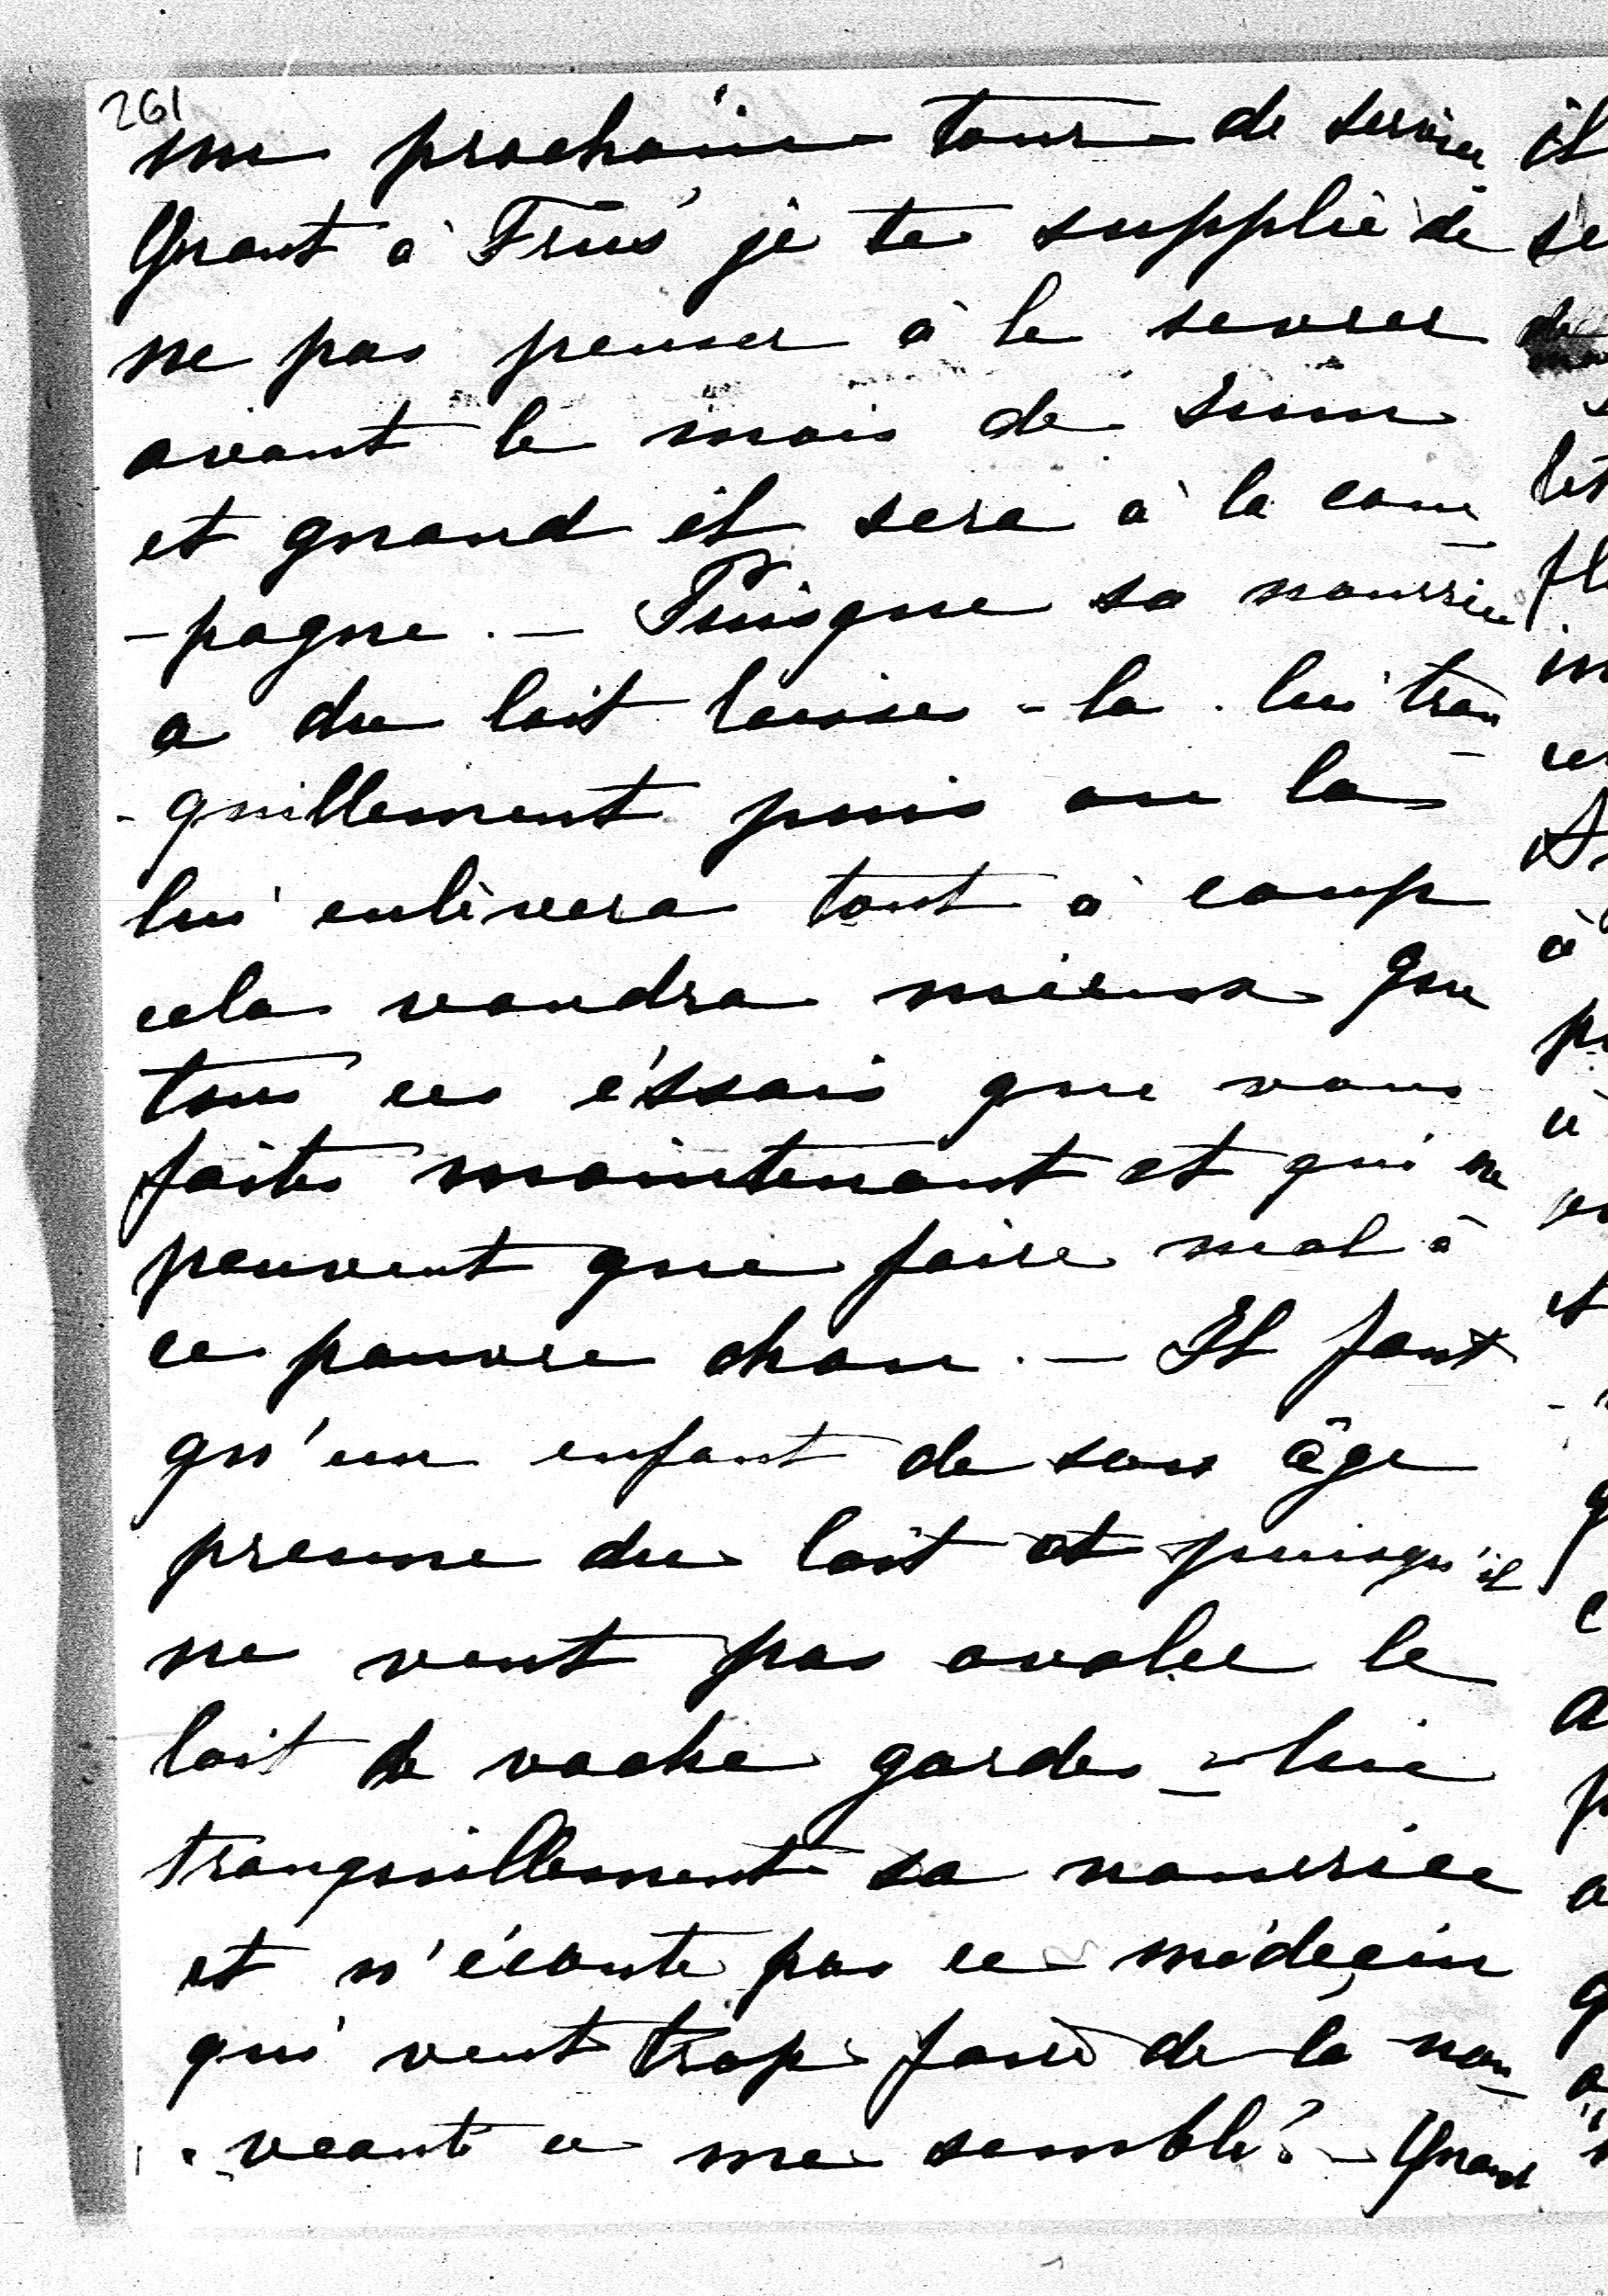 261
un prochain tour de service
Quant à je te supplie de
ne pas penser à le sevrer
avant le mois de Juin
et quand il sera à la cam
-pagne. - Puisque sa nourrice
a du lait laisse-la lui tran
-quillement puis on la
lui enlèvera tout à coup
cela vaudra mieux que
tous ces éssais que vous
faites maintenant et qui ne
peuvent que faire mal à
ce pauvre chou. - Il faut
qu'un enfant de son âge
prenne du lait et puisqu'il
ne veut pas avaler le
lait de vache gardes-lui
tranquillement sa nourrice
et n'écoute pas ce médecin
qui veut trop faire de la nou
-veauté ce me semble? - Quand